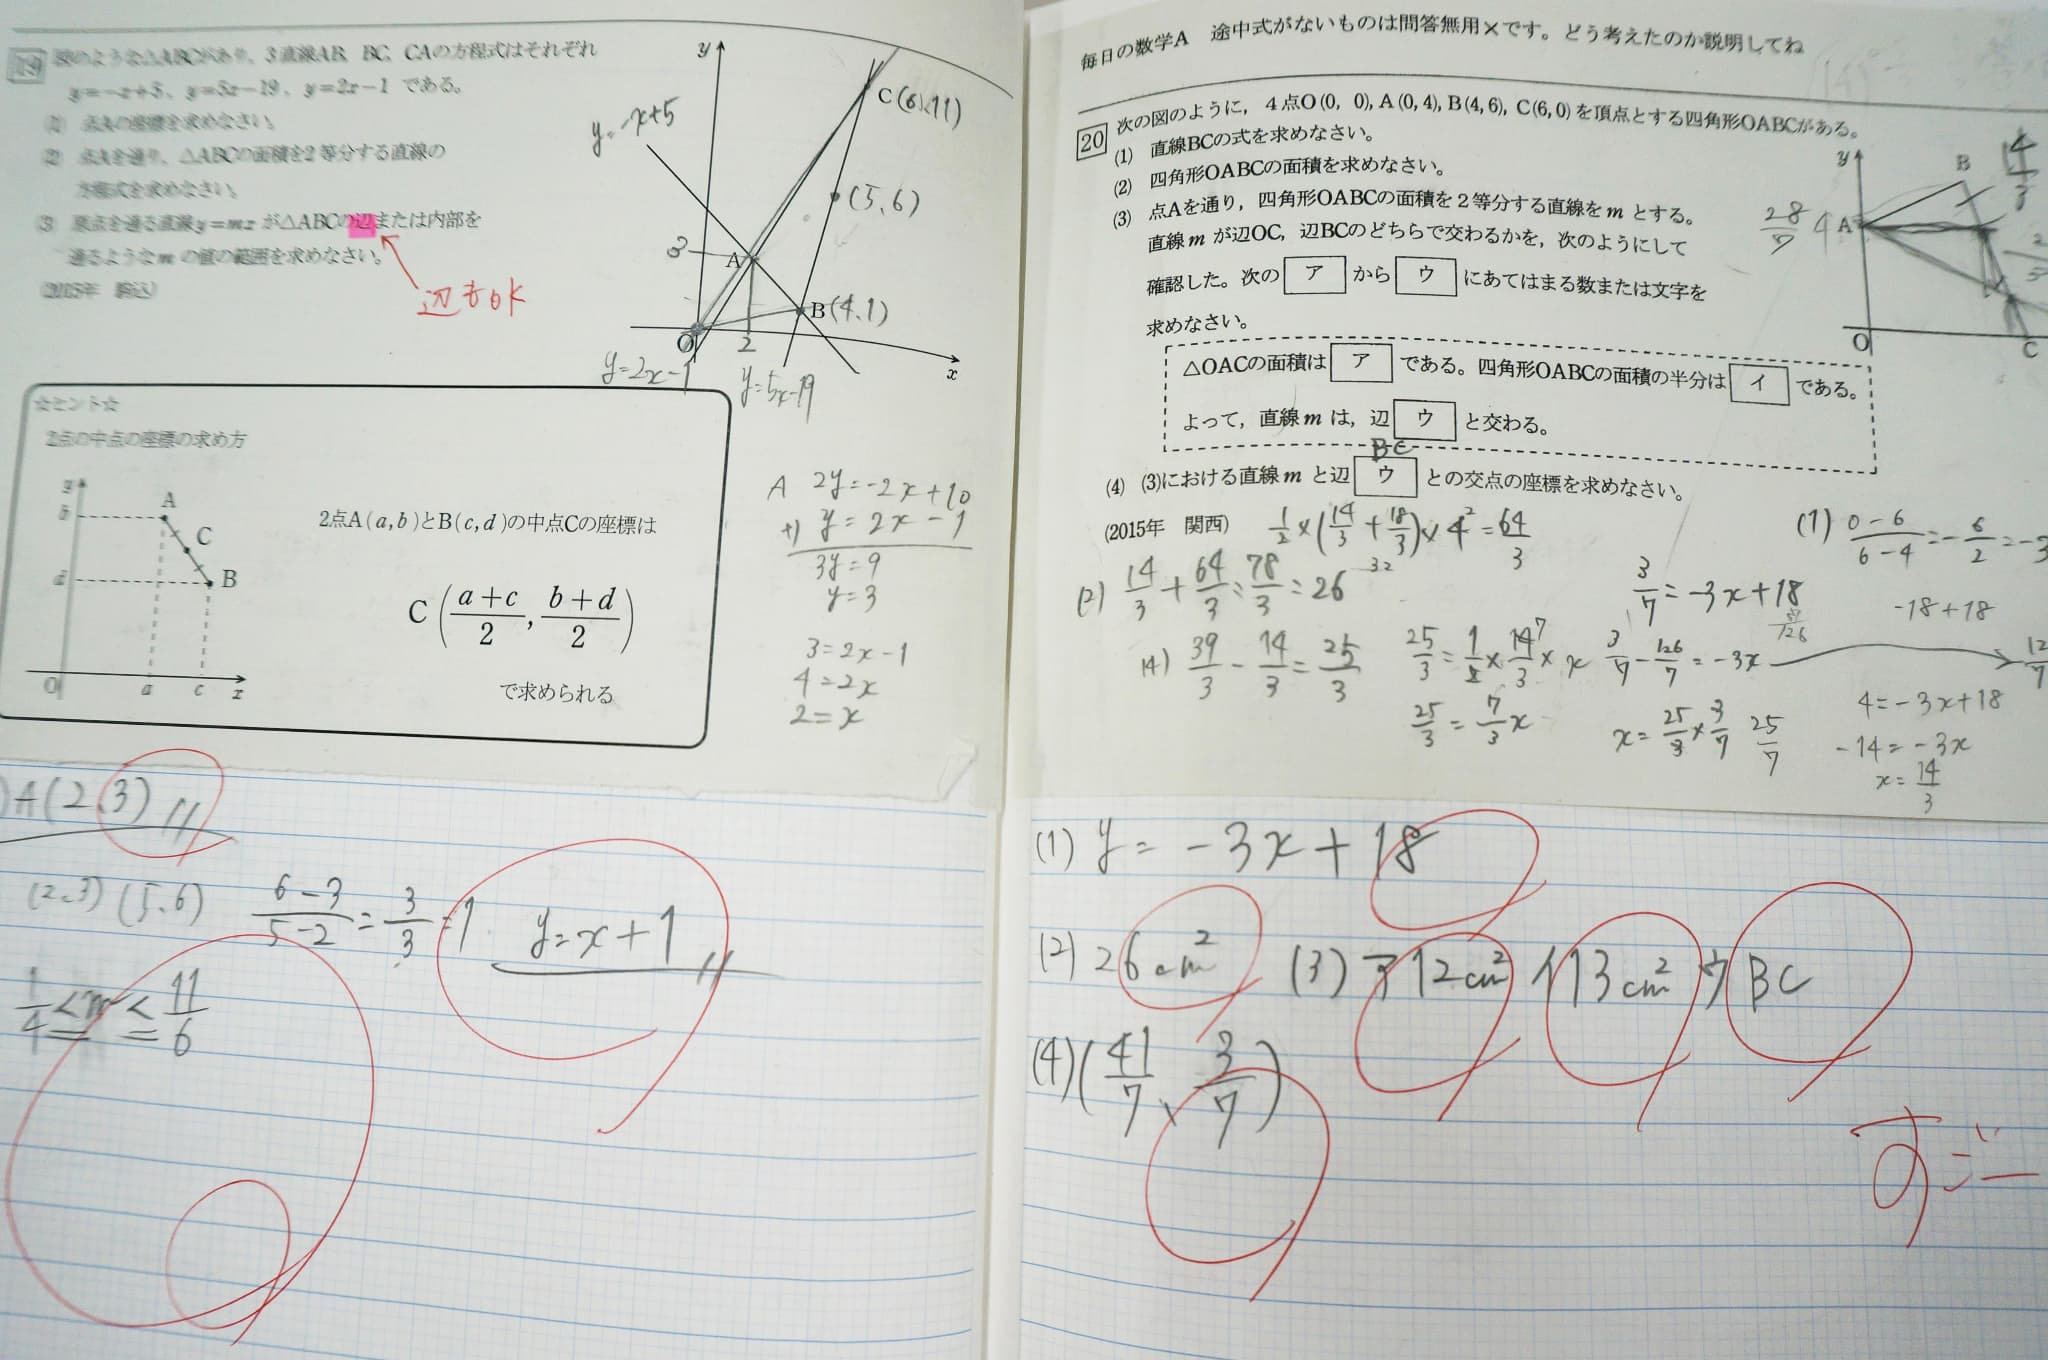 19 図のような△ABCがあり、3直線AB、BC、CAの方程式はそれぞれ
y=-x+5、y=5x-19、y=2x-1 である。
(1) 点Aの座標を求めなさい。
(2) 点Aを通り、△ABCの面積を2等分する直線の
方程式を求めなさい。
(3) 原点を通る直線y=mxが△ABCの辺または内部を
通るようなmの値の範囲を求めなさい。
(2015年 駒込)
辺もok
y
y=-x+5
C(6,11)
(5,6)
3
A
B(4,1)
O
2
x
y=2x-1
y=5x-19
☆ヒント☆
2点の中点の座標の求め方
y
b
A
C
d
B
O a c x
2点A(a,b)とB(c,d)の中点Cの座標は
C(a+c/2, b+d/2)
で求められる
A 2y=-2x+10
+) y=2x-1
3y=9
y=3
3=2x-1
4=2x
2=x
A(2,3)
(2,3) (5,6) 6-3/5-2=3/3=1 y=x+1
1/4≦m≦11/6
毎日の数学A 途中式がないものは問答無用×です。どう考えたのか説明してね
20 次の図のように，4点O(0, 0), A(0, 4), B(4, 6), C(6, 0)を頂点とする四角形OABCがある。
(1) 直線BCの式を求めなさい。
(2) 四角形OABCの面積を求めなさい。
(3) 点Aを通り，四角形OABCの面積を2等分する直線をmとする。
直線mが辺OC，辺BCのどちらで交わるかを，次のようにして
確認した。次の ア から ウ にあてはまる数または文字を
求めなさい。
△OACの面積は ア である。四角形OABCの面積の半分は イ である。
よって，直線mは，辺 ウ と交わる。
BC
(4) (3)における直線mと辺 ウ との交点の座標を求めなさい。
(2015年 関西)
y
B
28/7
4
A
O
C
1/2×(14/3+18/3)×4²=64/3
32
(2) 14/3+64/3=78/3=26
(4) 39/3-14/3=25/3
25/3=1/2×14/3×x
7
25/3=7/3x
x=25/3×3/7 25/7
3/7=-3x+18
3/7-126/7=-3x
(1) 0-6/6-4=-6/2=-3
-18+18
4=-3x+18
-14=-3x
x=14/3
(1) y=-3x+18
(2) 26cm² (3) ア12cm² イ13cm² ウBC
(4) (41/7, 3/7)
すごー